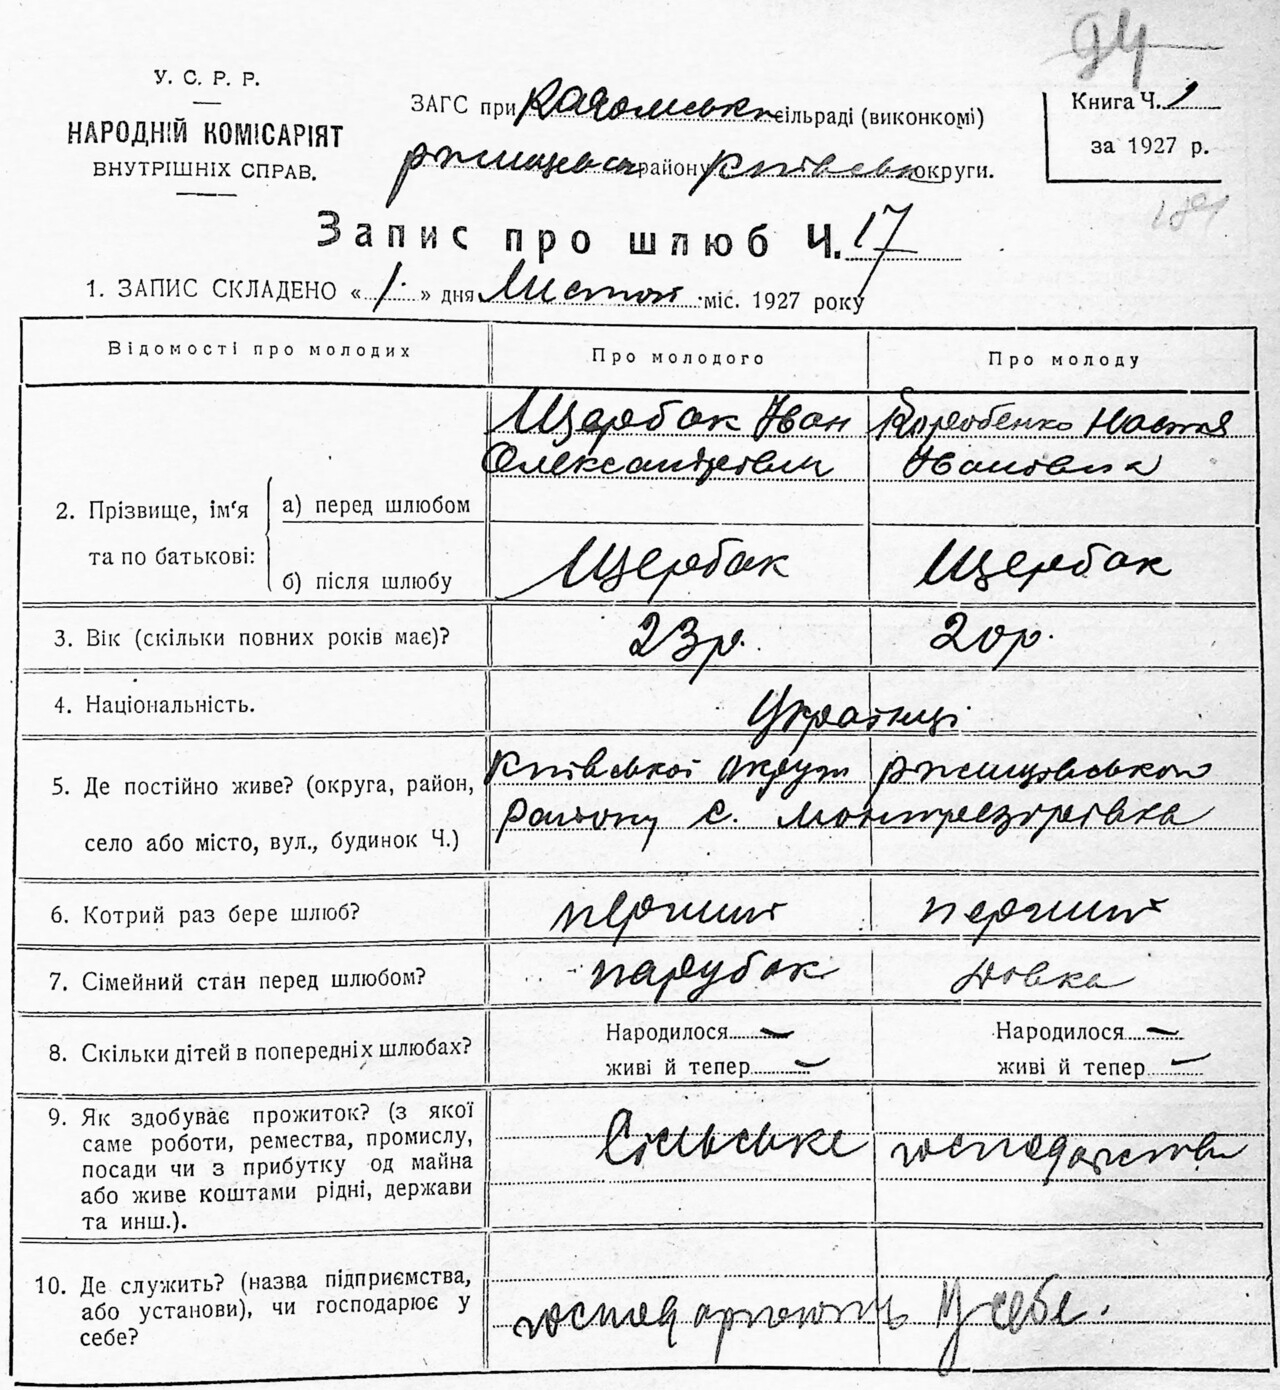 94
У. С. Р. Р.
НАРОДНІЙ КОМІСАРІЯТ
ВНУТРІШНІХ СПРАВ.
ЗАГС при сільраді (виконкомі)
району Київськ округи.
Книга Ч. 1
за 1927 р.
Запис про шлюб Ч. 17
1. ЗАПИС СКЛАДЕНО « 1 » дня Листоп міс. 1927 року
Відомості про молодих
Про молодого
Про молоду
2. Прізвище, ім'я та по батькові:
а) перед шлюбом
Щербак Іван
Олександрович
Коробенко Настя
Івановна
б) після шлюбу
Щербак
Щербак
3. Вік (скільки повних років має)?
23 р.
20 р.
4. Національність.
Українці
5. Де постійно живе? (округа, район,
село або місто, вул., будинок Ч.)
Київської округи ржищівського
району с. Монтрезорівка
6. Котрий раз бере шлюб?
перший
перший
7. Сімейний стан перед шлюбом?
парубок
дівка
8. Скільки дітей в попередніх шлюбах?
Народилося —
живі й тепер —
Народилося —
живі й тепер —
9. Як здобуває прожиток? (з якої
саме роботи, ремества, промислу,
посади чи з прибутку од майна
або живе коштами рідні, держави
та инш.).
Сільське господарство
10. Де служить? (назва підприємства,
або установи), чи господарює у
себе?
господарюють у себе.